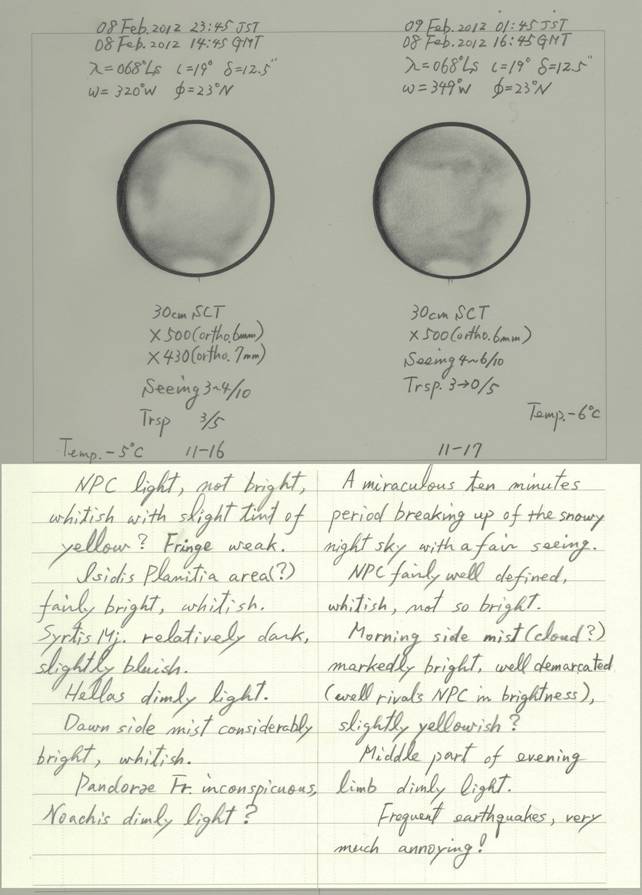 08 Feb. 2012 23:45 JST
08 Feb. 2012 14:45 GMT
λ=068°Ls ι=19° δ=12.5"
ω=320°W φ=23°N
30cm SCT
×500(ortho.6mm)
×430(ortho.7mm)
Seeing 3~4/10
Trsp 3/5
Temp. -5°C 11-16
09 Feb. 2012 01:45 JST
08 Feb. 2012 16:45 GMT
λ=068°Ls ι=19° δ=12.5"
ω=349°W φ=23°N
30cm SCT
×500(ortho.6mm)
Seeing 4~6/10
Trsp. 3→0/5
Temp. -6°C
11-17
NPC light, not bright,
whitish with slight tint of
yellow? Fringe weak.
Isidis Planitia area(?)
fairly bright, whitish.
Syrtis Mj. relatively dark,
slightly bluish.
Hellas dimly light.
Dawn side mist considerably
bright, whitish.
Pandorae Fr. inconspicuous,
Noachis dimly light?
A miraculous ten minutes
period breaking up of the snowy
night sky with a fair seeing.
NPC fairly well defined,
whitish, not so bright.
Morning side mist (cloud?)
markedly bright, well demarcated
(well rivals NPC in brightness),
slightly yellowish?
Middle part of evening
limb dimly light.
Frequent earthquakes, very
much annoying!